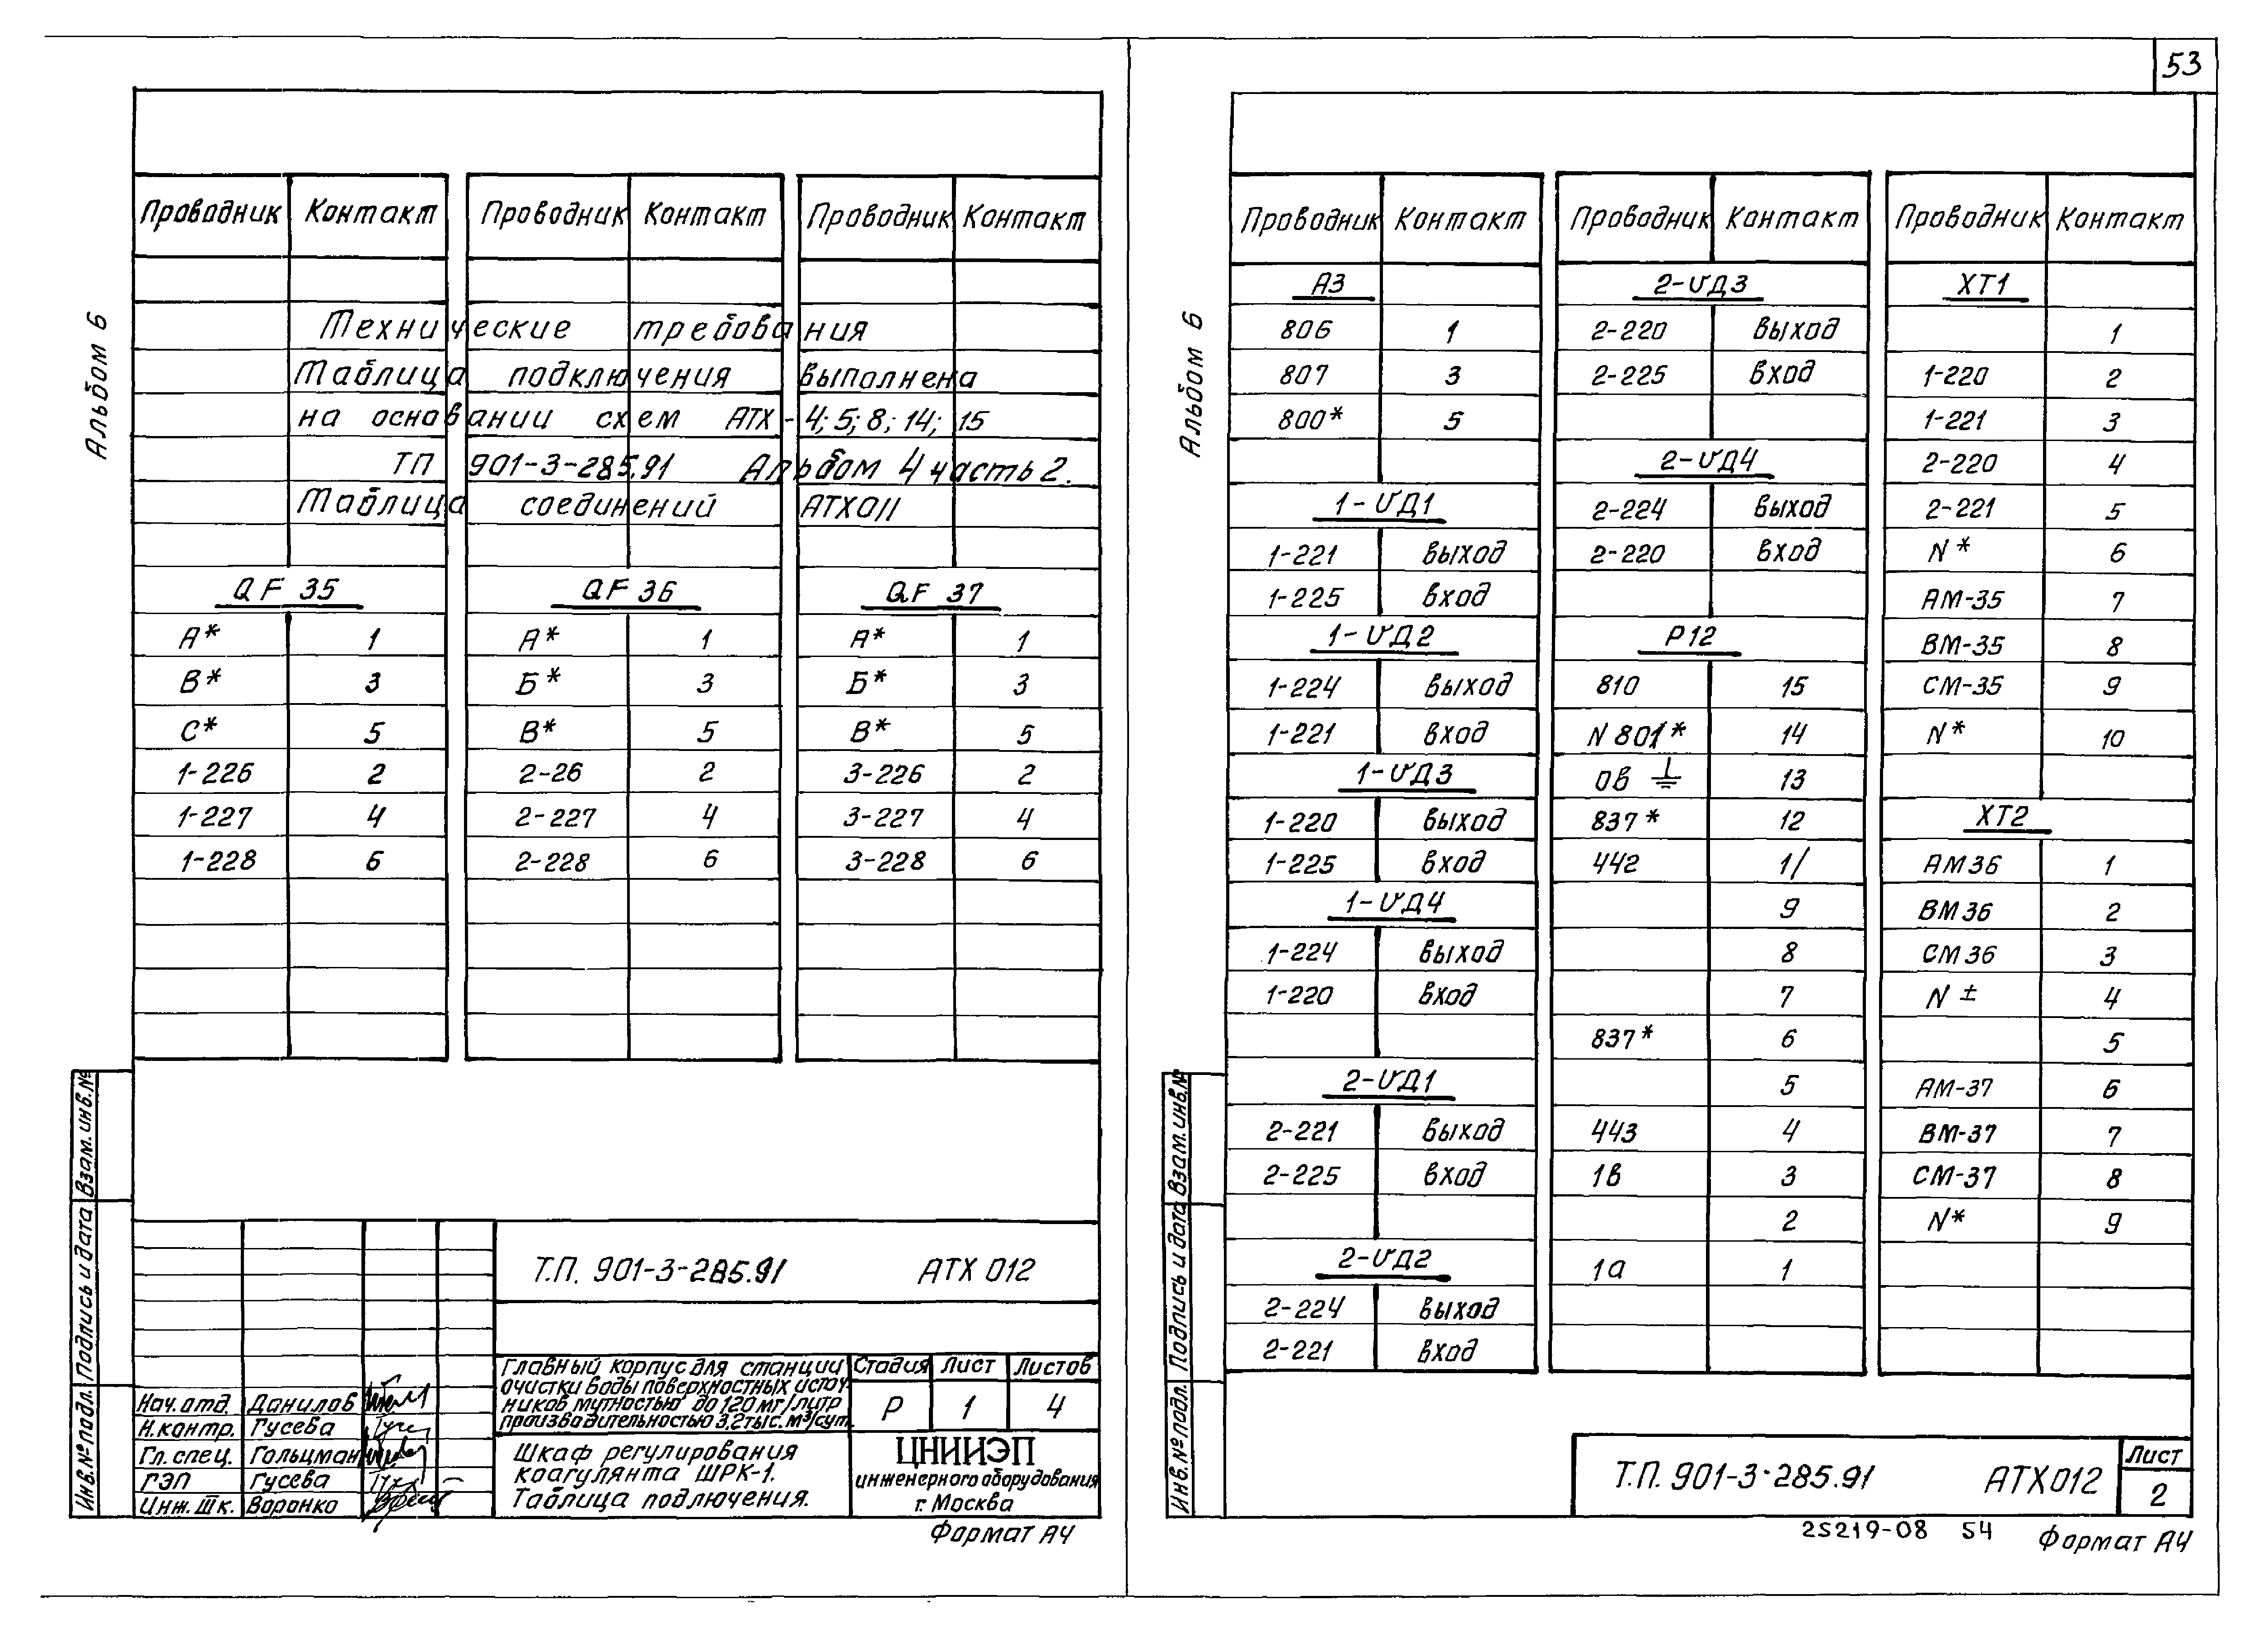 53
Альбом 6
Проводник Контакт Проводник Контакт Проводник Контакт
Технические требования
Таблица подключения выполнена
на основании схем АТХ-4; 5; 8; 14; 15
ТП 901-3-285.91 Альбом 4 часть 2.
Таблица соединений АТХ011
QF 35 QF 36 QF 37
А* 1 А* 1 А* 1
В* 3 Б* 3 Б* 3
С* 5 В* 5 В* 5
1-226 2 2-26 2 3-226 2
1-227 4 2-227 4 3-227 4
1-228 6 2-228 6 3-228 6
Взам. инв.№
Подпись и дата
Инв.№ подл.
Т.П. 901-3-285.91 АТХ 012
Главный корпус для станции
очистки воды поверхностных источ-
ников мутностью до 120 мг/литр
производительностью 3,2тыс. м³/сут.
Стадия Лист Листов
Р 1 4
Нач. отд. Данилов
Н.контр. Гусева
Гл. спец. Гольцман
ГЭП Гусева
Инж. IIк. Воронко
Шкаф регулирования
коагулянта ШРК-1.
Таблица подлючения.
ЦНИИЭП
инженерного оборудования
г. Москва
Формат А4
Альбом 6
Проводник Контакт Проводник Контакт Проводник Контакт
А3 2-UД3 ХТ1
806 1 2-220 выход 1
807 3 2-225 вход 1-220 2
800* 5 1-221 3
2-UД4 2-220 4
1-UД1 2-224 выход 2-221 5
1-221 выход 2-220 вход N* 6
1-225 вход АМ-35 7
1-UД2 Р12 ВМ-35 8
1-224 выход 810 15 СМ-35 9
1-221 вход N 801* 14 N* 10
1-UД3 0в ⏚ 13
1-220 выход 837* 12 ХТ2
1-225 вход 442 1/ АМ36 1
1-UД4 9 ВМ36 2
1-224 выход 8 СМ36 3
1-220 вход 7 N ± 4
837* 6 5
2-UД1 5 АМ-37 6
2-221 выход 443 4 ВМ-37 7
2-225 вход 1в 3 СМ-37 8
2 N* 9
2-UД2 1а 1
2-224 выход
2-221 вход
Взам. инв.№
Подпись и дата
Инв.№ подл.
Т.П. 901-3-285.91 АТХ012
Лист
2
25219-08 54
Формат А4